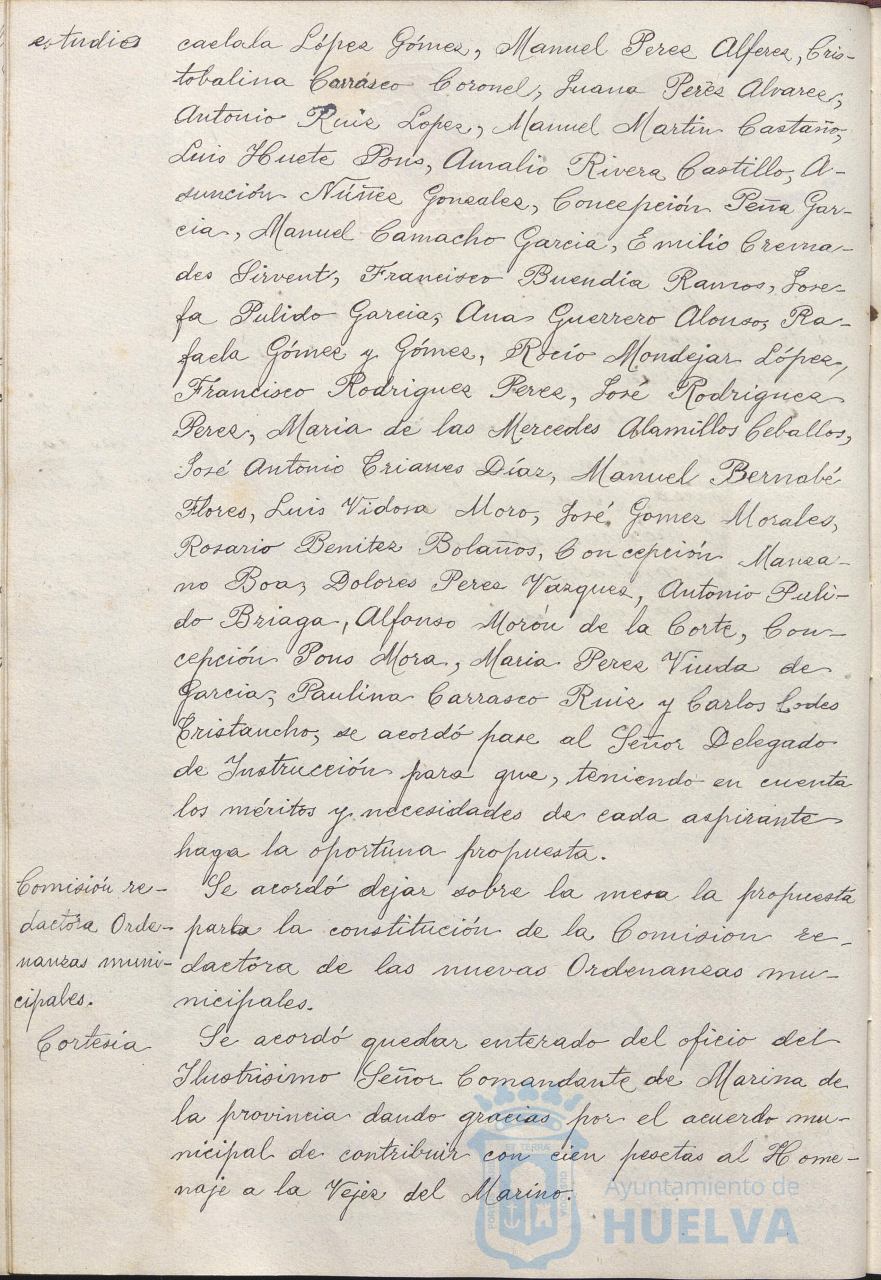 estudios
caelala López Gómez, Manuel Perez Alferez, Cris-
tobalina Carrásco Coronel, Juana Perèz Alvarez,
Antonio Ruiz Lopez, Manuel Martin Castaño,
Luis Huete Pons, Amalio Rivera Castillo, A-
sunción Núñez Gonzalez, Concepción Peña Gar-
cia, Manuel Camacho Garcia, Emilio Crema-
des Sirvent, Francisco Buendía Ramos, Jose-
fa Pulido Garcia, Ana Guerrero Alonso, Ra-
faela Gómez y Gómez, Rocío Mondejar López,
Francisco Rodriguez Perez, José Rodriguez
Perez, Maria de las Mercedes Alamillos Ceballos,
José Antonio Crianes Díaz, Manuel Bernabé
Flores, Luis Vidosa Moro, José Gomez Morales,
Rosario Benitez Bolaños, Concepción Manza-
no Boa, Dolores Perez Vazquez, Antonio Puli-
do Briaga, Alfonso Morón de la Corte, Con-
cepción Pons Mora, Maria Perez Viuda de
Garcia, Paulina Carrasco Ruiz y Carlos Codes
Cristancho, se acordó pase al Señor Delegado
de Instrucción para que, teniendo en cuenta
los méritos y necesidades de cada aspirante
haga la oportuna propuesta.
Comisión re-
dactora Orde-
nanzas muni-
cipales.
Se acordó dejar sobre la mesa la propuesta
para la constitución de la Comision re-
dactora de las nuevas Ordenanzas mu-
nicipales.
Cortesía
Se acordó quedar enterado del oficio del
Ilustrisimo Señor Comandante de Marina de
la provincia dando gracias por el acuerdo mu-
nicipal de contribuir con cien pesetas al Home-
naje a la Vejez del Marino.
Ayuntamiento de
HUELVA